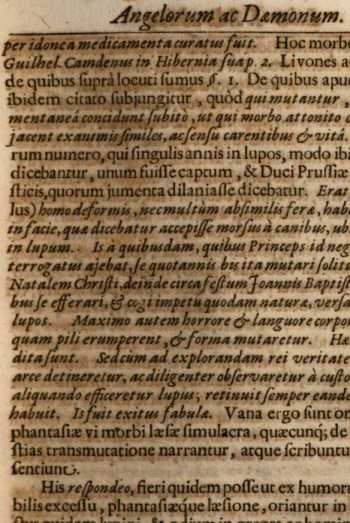 Angelorum ac Dæmonum.
per idonea medicamenta curatus fuit. Hoc morbo
Guilhel. Camdenus in Hibernia suâ p. 2. Livones a
de quibus suprà locuti sumus §. 1. De quibus apud
ibidem citato subjungitur, quòd qui mutantur,
mentaneâ concidunt subitò, ut qui morbo attonito c
jacent exanimis similes, ac sensu carentibus & vitâ.
rum numero, qui singulis annis in lupos, modo ibi
dicebantur, unum fuisse captum, & Duci Prussiæ
sticis, quorum jumenta dilaniasse dicebatur. Erat
lus) homo deformis, nec multùm absimilis feræ, hab
in facie, qua dicebatur accepisse morsus à canibus, ub
in lupum. Is à quibusdam, quibus Princeps id neg
terrogatus ajebat, se quotannis bis ita mutari solitu
Natalem Christi, deinde circa festum Joannis Baptist
bus se efferari, & cogi impetu quodam naturæ, versa
lupos. Maximo autem horrore & languore corpor
quam pili erumperent, & forma mutaretur. Hæ
dita sunt. Sed cùm ad explorandam rei veritate
arce detineretur, ac diligenter observaretur à custo
aliquando efficeretur lupus; retinuit semper eande
habuit. Is fuit exitus fabulæ. Vana ergo sunt om
phantasiæ vi morbi læsæ simulacra, quæcunq; de
stias transmutatione narrantur, atque scribuntu
sentiunt.
His respondeo, fieri quidem posse ut ex humor
bilis excessu, phantasiæque læsione, oriantur in